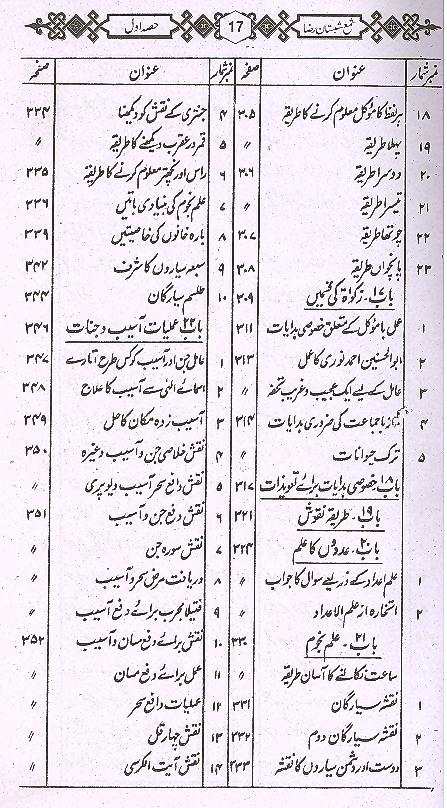 شمع شبستان رضا 17 حصہ اول
نمبرشمار عنوان صفحہ
۱۸ ہر لفظ کا مؤکل معلوم کرنے کا طریقہ ۳۰۵
۱۹ پہلا طریقہ 〃
۲۰ دوسرا طریقہ ۳۰۶
۲۱ تیسرا طریقہ 〃
۲۲ چوتھا طریقہ ۳۰۷
۲۳ پانچواں طریقہ ۳۰۸
باب ۱۷۔ زکوٰۃ کی قسمیں ۳۰۹
۱ عمل یا مؤکل کے متعلق خصوصی ہدایات ۳۱۱
۲ ابوالحسنین احمد نوری کا عمل ۳۱۳
۳ عامل کے لیے ایک عجیب و غریب تحفہ 〃
۴ نماز باجماعت کی ضروری ہدایات ۳۱۴
۵ ترک حیوانات 〃
باب ۱۸ خصوصی ہدایات برائے تعویذات ۳۱۷
باب ۱۹۔ طریقہ نقوش ۳۲۱
باب ۲۰۔ عددوں کا علم ۳۲۴
۱ علم اعداد کے ذریعے سوال کا جواب 〃
۲ استخارہ از علم الاعداد 〃
باب ۲۱۔ علم نجوم ۳۳۰
ساعت نکالنے کا آسان طریقہ 〃
۱ نقشہ سیارگان ۳۳۱
۲ نقشہ سیارگان دوم ۳۳۲
۳ دوست اور دشمن سیاروں کا نقشہ ۳۳۳
نمبرشمار عنوان صفحہ
۴ جنتری کے نقش کو دیکھنا ۳۳۴
۵ قمر در عقرب دیکھنے کا طریقہ 〃
۶ راس اور نچھتر معلوم کرنے کا طریقہ ۳۳۵
۷ علم نجوم کی بنیادی باتیں ۳۳۶
۸ بارہ خانوں کی خاصیتیں ۳۳۹
۹ سبعہ سیاروں کا شرف ۳۴۲
۱۰ طلسم سیارگان ۳۴۴
باب ۲۲ عملیات آسیب و جنات ۳۴۶
۱ عامل جن اور آسیب کو کس طرح اتارے ۳۴۷
۲ اسمائے الٰہی سے آسیب کا علاج ۳۴۸
۳ آسیب زدہ مکان کا حل ۳۴۹
۴ نقش خلاصی جن و آسیب وغیرہ ۳۵۰
۵ نقش دافع سحر آسیب دیو پری 〃
۶ نقش دفع جن و آسیب ۳۵۱
۷ نقش سورہ جن 〃
۸ دریافت مرض سحر و آسیب 〃
۹ فتیلہ مجرب برائے دفع آسیب 〃
۱۰ نقش برائے دفع مسان و آسیب ۳۵۲
۱۱ عمل برائے دفع مسان 〃
۱۲ عملیات دافع سحر 〃
۱۳ نقش چہار قل 〃
۱۴ نقش آیت الکرسی 〃